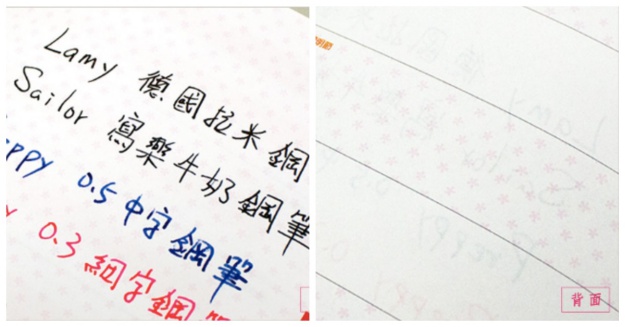 Lamy 德國拉米鋼
Sailor 寫樂牛奶鋼筆
ppy 0.5 中字鋼筆
0.3 細字鋼
背面